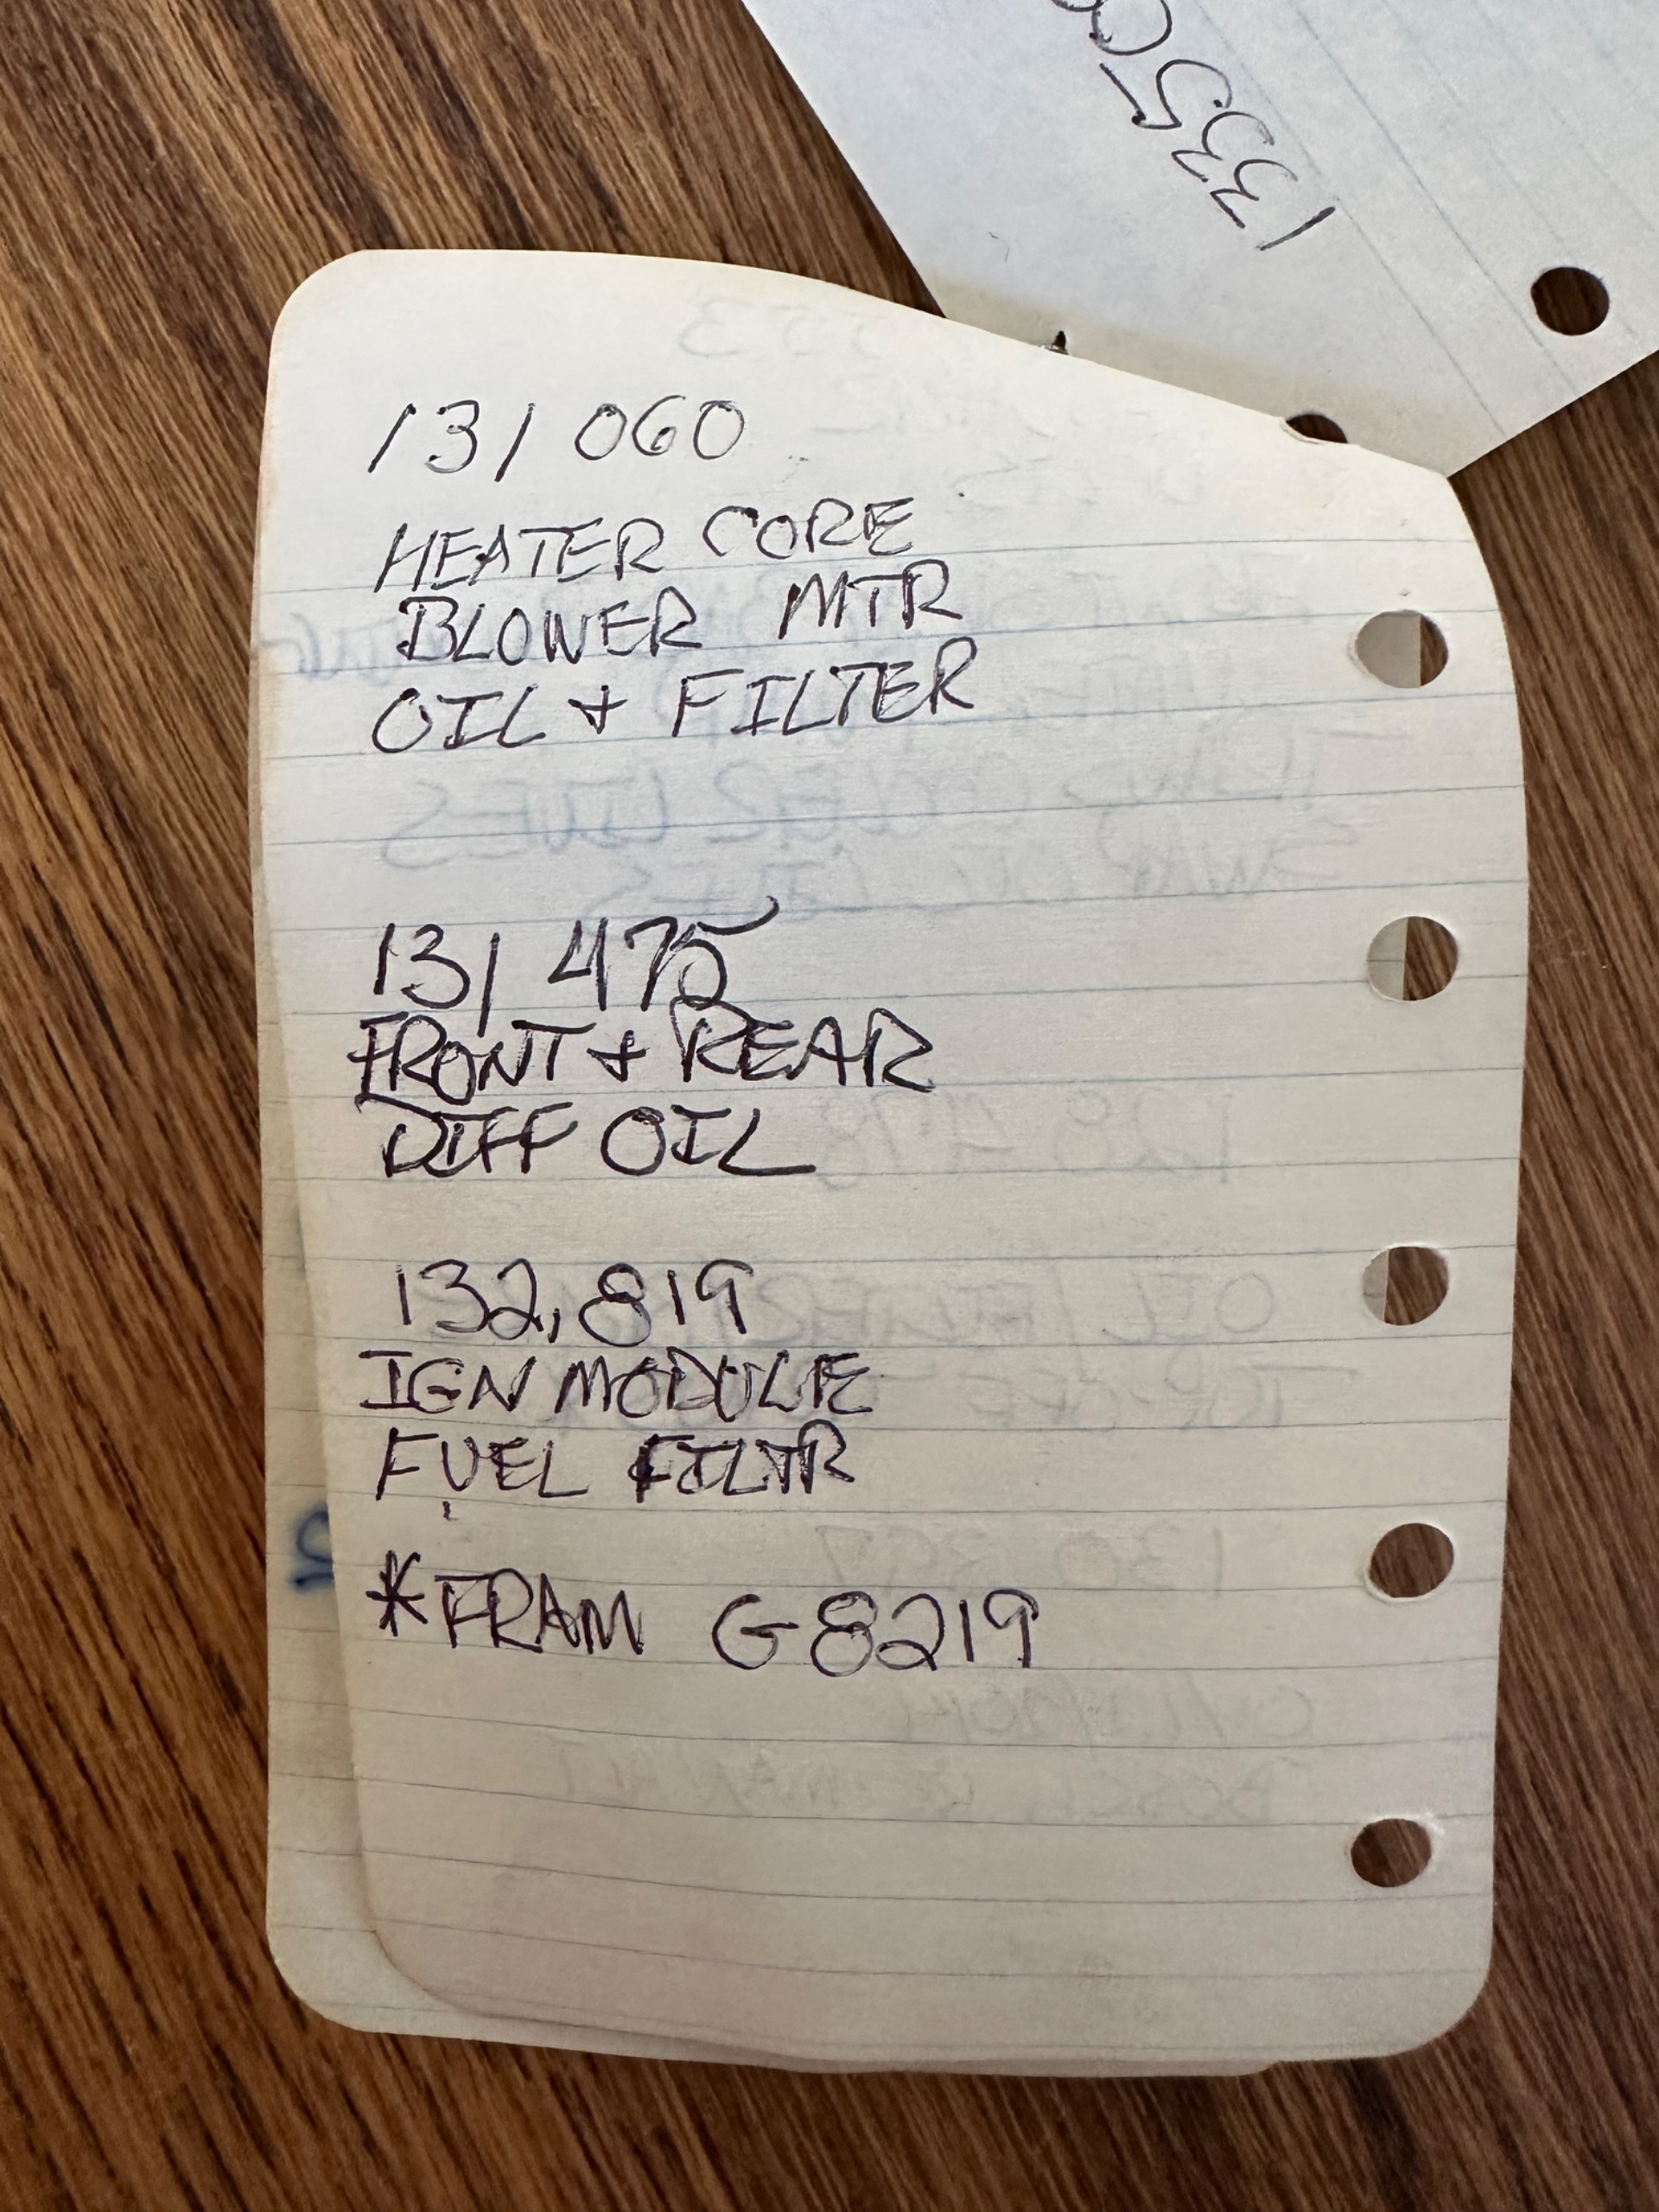 131 060
HEATER CORE
BLOWER MTR
OIL + FILTER
131 475
FRONT + REAR
DIFF OIL
132,819
IGN MODULE
FUEL FILTR
*FRAM G8219